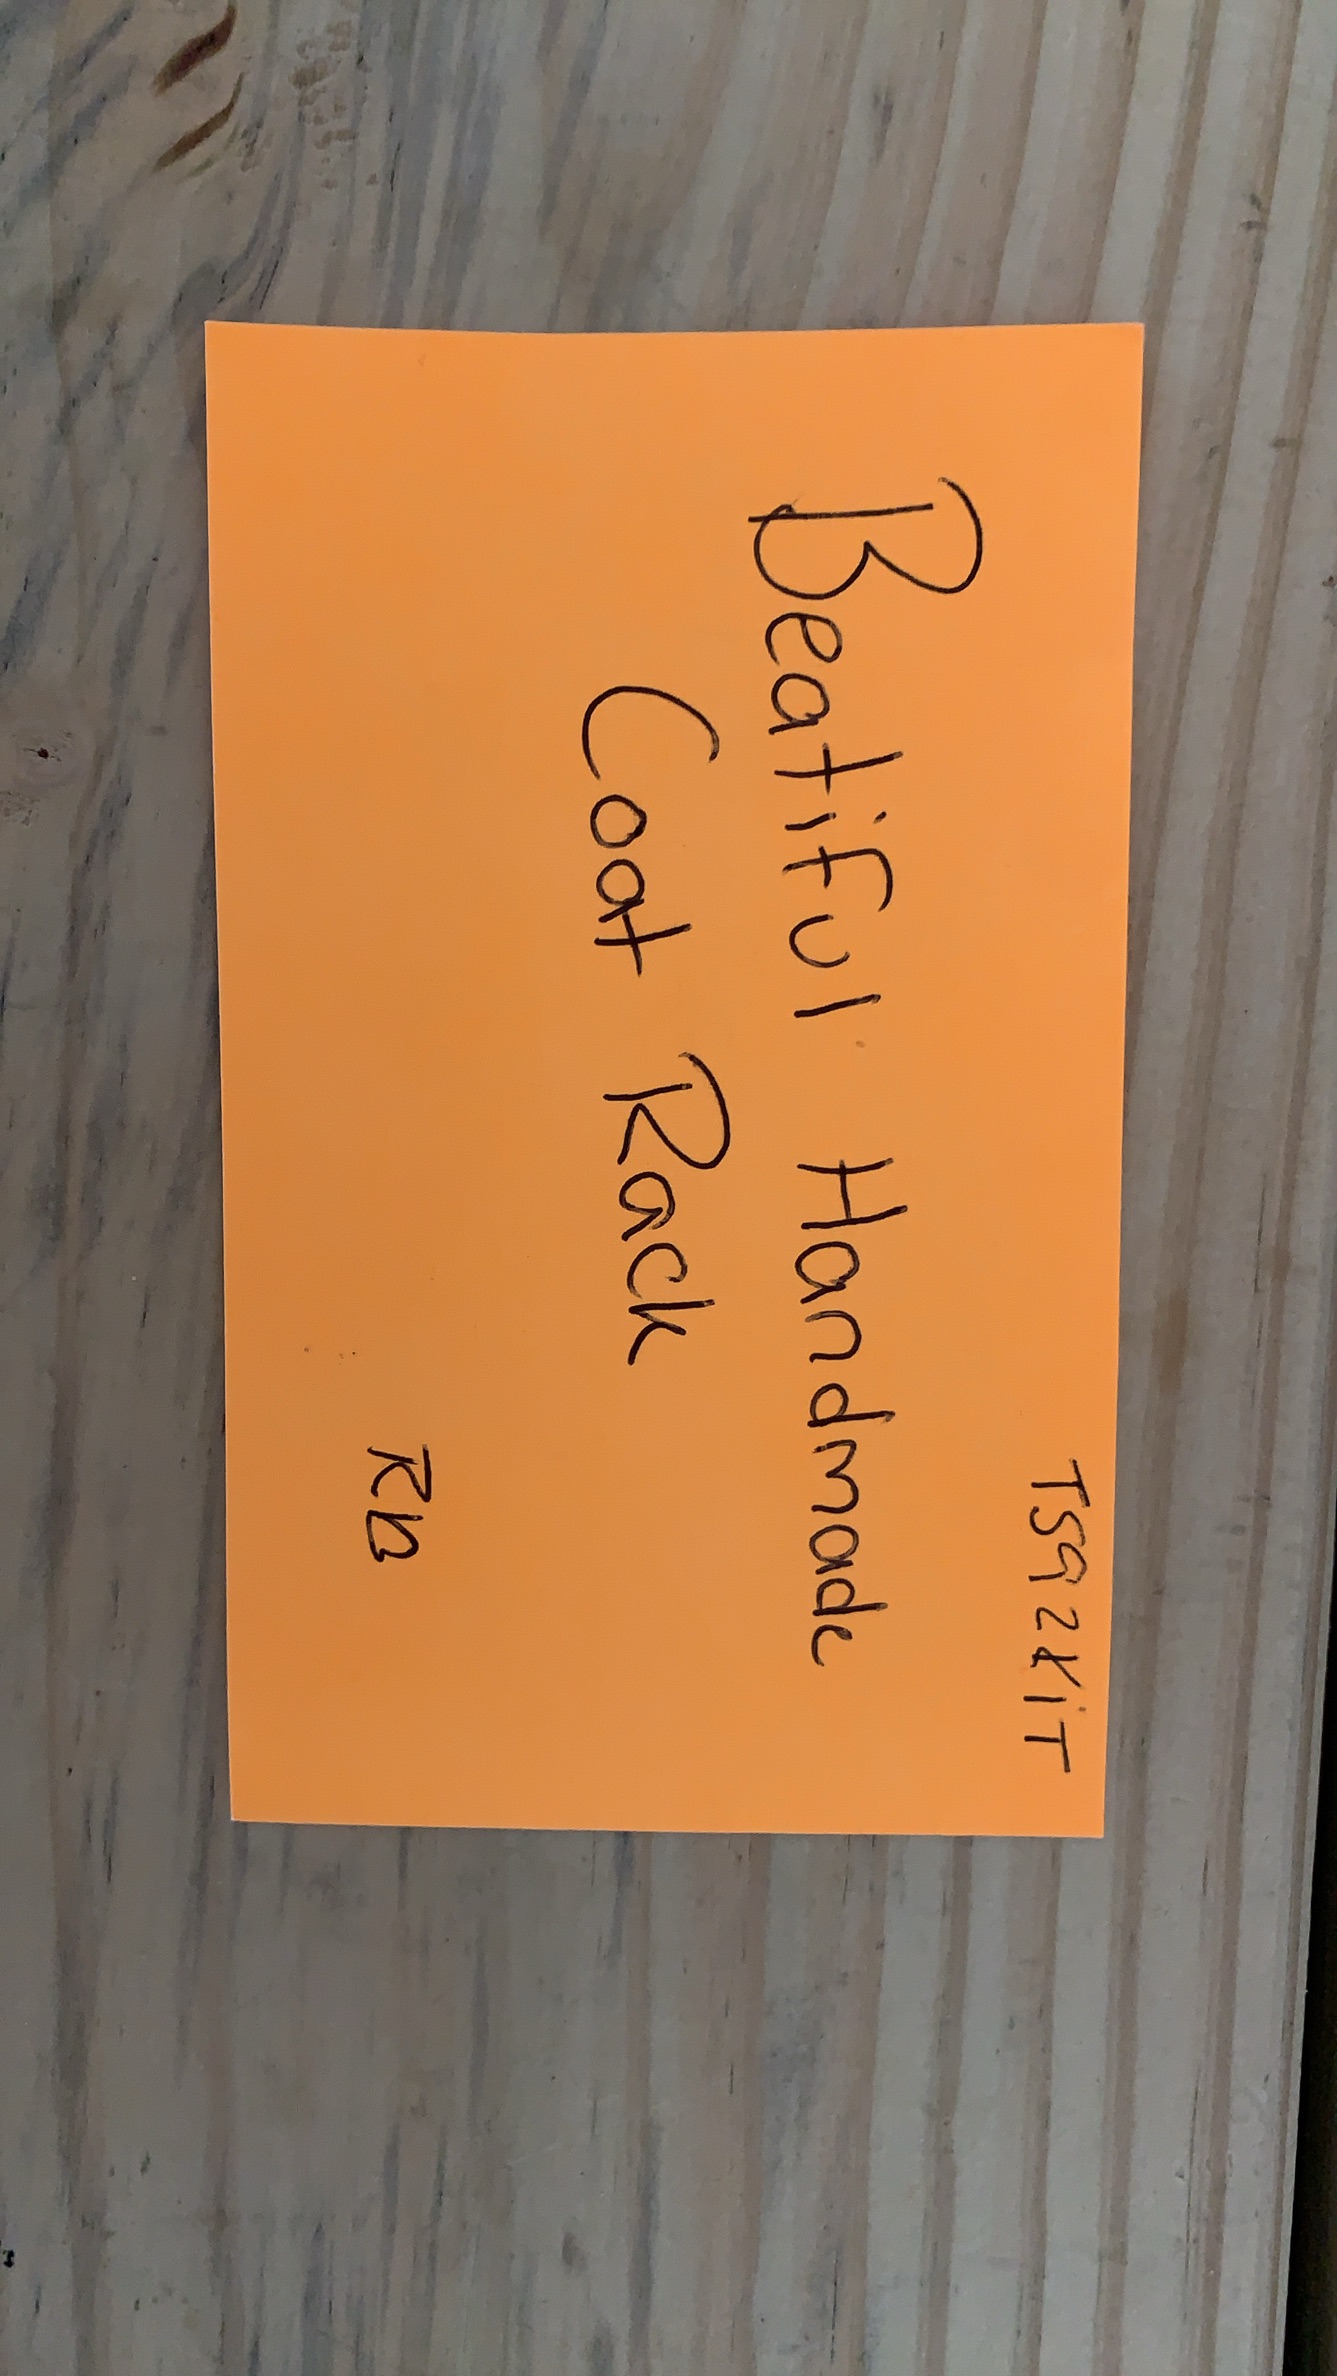 TS92KiT
Beatiful Handmade
Coat Rack
RB